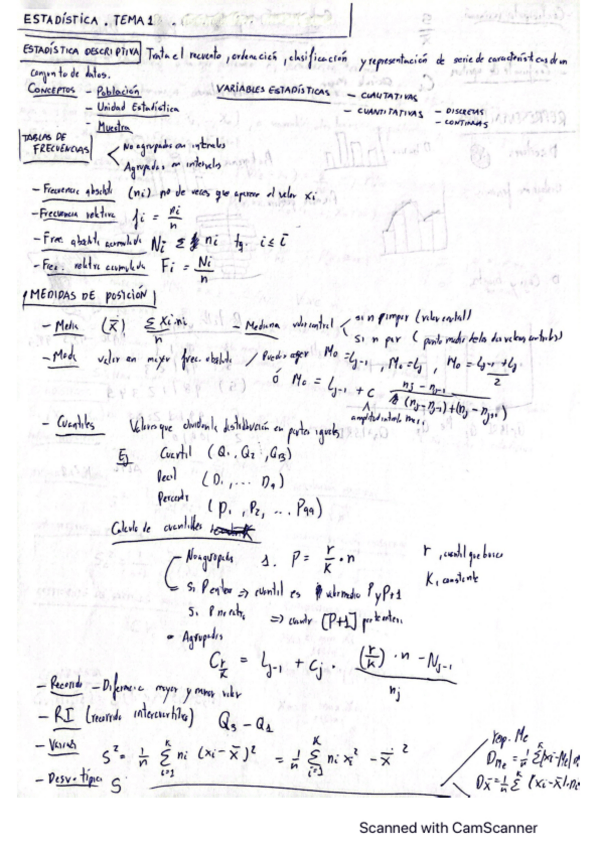 ESTADÍSTICA. TEMA 1.
ESTADÍSTICA DESCRIPTIVA Trata el recuento, ordenación, clasificación y representación de serie de características de un
conjunto de datos.
CONCEPTOS - Población VARIABLES ESTADÍSTICAS - CUALITATIVAS
- Unidad Estadística - CUANTITATIVAS - DISCRETAS
- Muestra - CONTINUAS
TABLAS DE FRECUENCIAS
No agrupados en intervalos
Agrupados en intervalos
- Frecuencia absoluta (ni) no de veces que aparece el valor xi
- Frecuencia relativa fi = ni/n
- Frec. absoluta acumulada Ni Σ ni tq. i ≤ i
- Frec. relativa acumulada Fi = Ni/n
MEDIDAS DE POSICIÓN
- Media (x̄) Σxi·ni/n - Mediana valor central si n impar (valor central)
si n par (punto medio de los dos valores centrales)
- Moda valor con mayor frec. absoluta / Puedo coger Mo = Lj-1, Mo = Lj, Mo = Lj-1 + Lj / 2
ó Mo = Lj-1 + C nj - nj-1 / (nj - nj-1) + (nj - nj+1)
amplitud intervalo
- Cuantiles Valores que dividen la distribución en partes iguales
Ej Cuartil (Q1, Q2, Q3)
Decil (D1, ... D9)
Percentil (P1, P2, ... P99)
Calculo de cuantiles
- No agrupados 1. P = r/k · n r, cuantil que busco
K, constante
- si P entero => cuantil es valor medio P y P+1
Si P no entero => cuantil [P+1] parte entera
- Agrupados
C r/k = Lj-1 + Cj · (r/k) · n - Nj-1 / nj
- Recorrido - Diferencia mayor y menor valor
- RI (recorrido intercuartílico) Q3 - Q1
- Varianza S² = 1/n Σ ni (xi - x̄)² = 1/n Σ ni xi² - x̄²
- Desv. típica S
resp. Me
DMe = 1/n Σ|xi - Me|
Dx̄ = 1/n Σ (xi - x̄)
Scanned with CamScanner